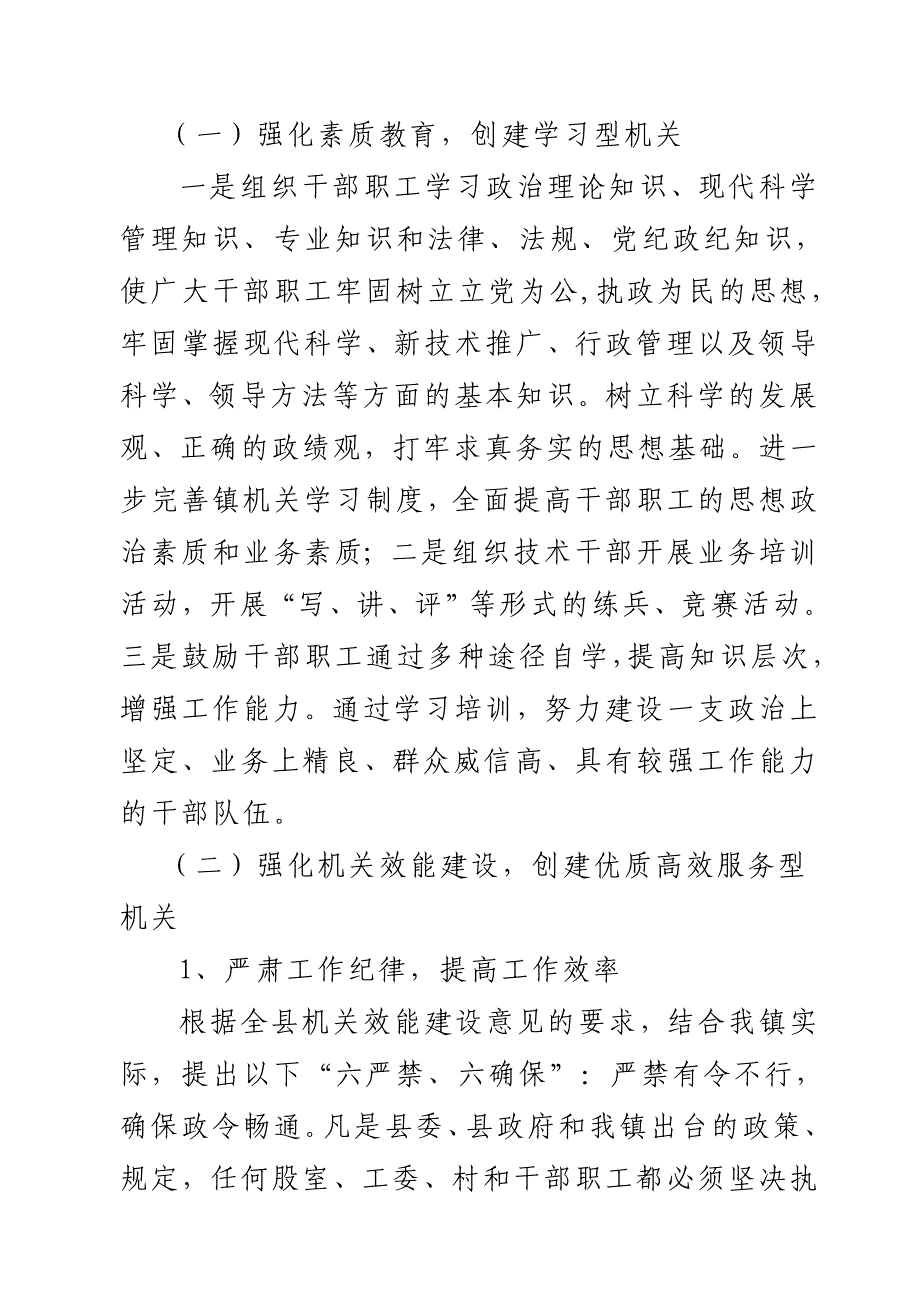 （一）强化素质教育，创建学习型机关
一是组织干部职工学习政治理论知识、现代科学
管理知识、专业知识和法律、法规、党纪政纪知识，
使广大干部职工牢固树立立党为公,执政为民的思想，
牢固掌握现代科学、新技术推广、行政管理以及领导
科学、领导方法等方面的基本知识。树立科学的发展
观、正确的政绩观，打牢求真务实的思想基础。进一
步完善镇机关学习制度，全面提高干部职工的思想政
治素质和业务素质；二是组织技术干部开展业务培训
活动，开展“写、讲、评”等形式的练兵、竞赛活动。
三是鼓励干部职工通过多种途径自学,提高知识层次，
增强工作能力。通过学习培训，努力建设一支政治上
坚定、业务上精良、群众威信高、具有较强工作能力
的干部队伍。
（二）强化机关效能建设，创建优质高效服务型
机关
1、严肃工作纪律，提高工作效率
根据全县机关效能建设意见的要求，结合我镇实
际，提出以下“六严禁、六确保”：严禁有令不行，
确保政令畅通。凡是县委、县政府和我镇出台的政策、
规定，任何股室、工委、村和干部职工都必须坚决执